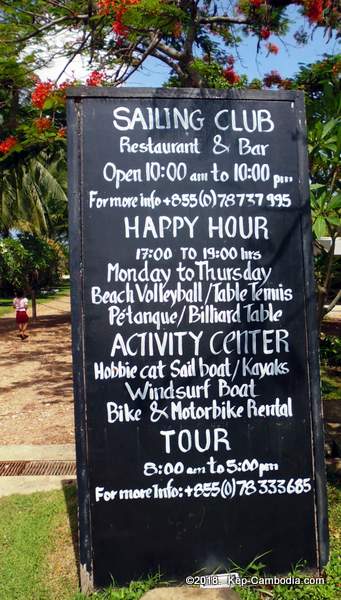 SAILING CLUB
Restaurant & Bar
Open 10:00 am to 10:00 pm
For more info +855(0)78 737 995
HAPPY HOUR
17:00 TO 19:00 hrs
Monday to Thursday
Beach Volleyball/Table Tennis
Pétanque/Billiard Table
ACTIVITY CENTER
Hobbie cat Sail boat/Kayaks
Windsurf Boat
Bike & Motorbike Rental
TOUR
8:00 am to 5:00 pm
For more Info: +855(0)78 333 685
©2018 Kep-Cambodia.com